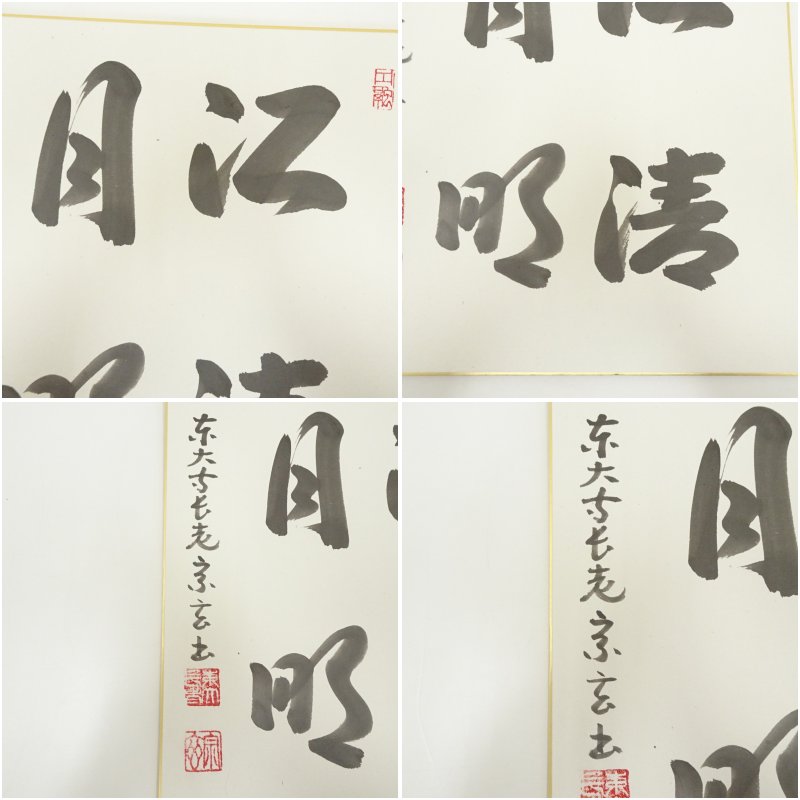 江清
月明
清
明
月明
東大寺長老宗玄書
月
東大寺長老宗玄書